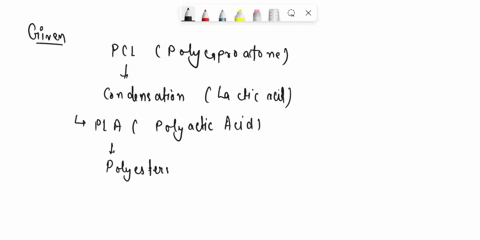 Given
PCL (Polycaproactone)
↓
Condensation (Lactic acid)
↳ PLA ( Polyactic Acid)
↓
Polyesteri